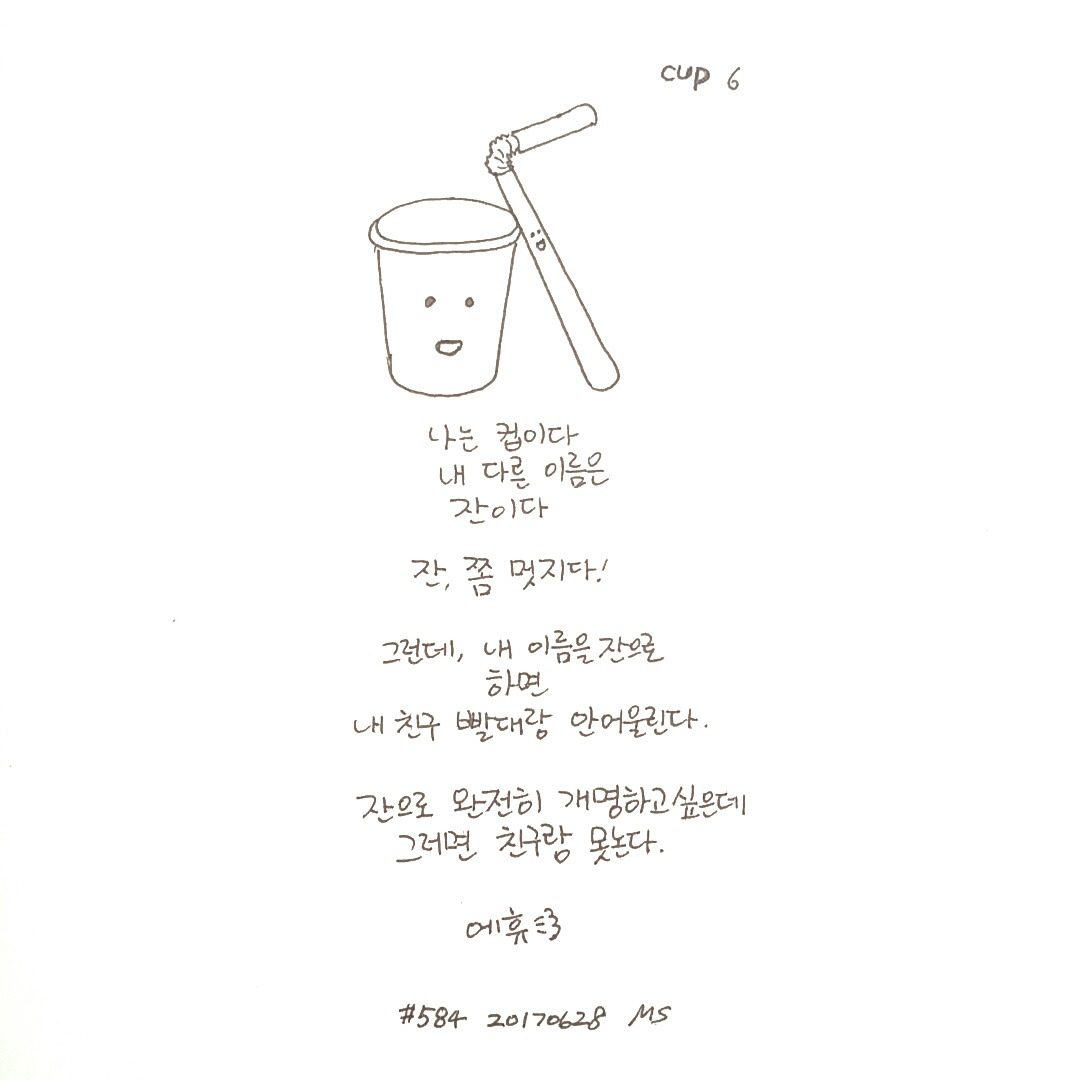 cup 6
나는 컵이다
내 다른 이름은
잔이다
잔, 쫌 멋지다!
그런데, 내 이름을 잔으로
하면
내 친구 빨대랑 안어울린다.
잔으로 완전히 개명하고싶은데
그러면 친구랑 못논다.
에휴
#584 20170628 MS